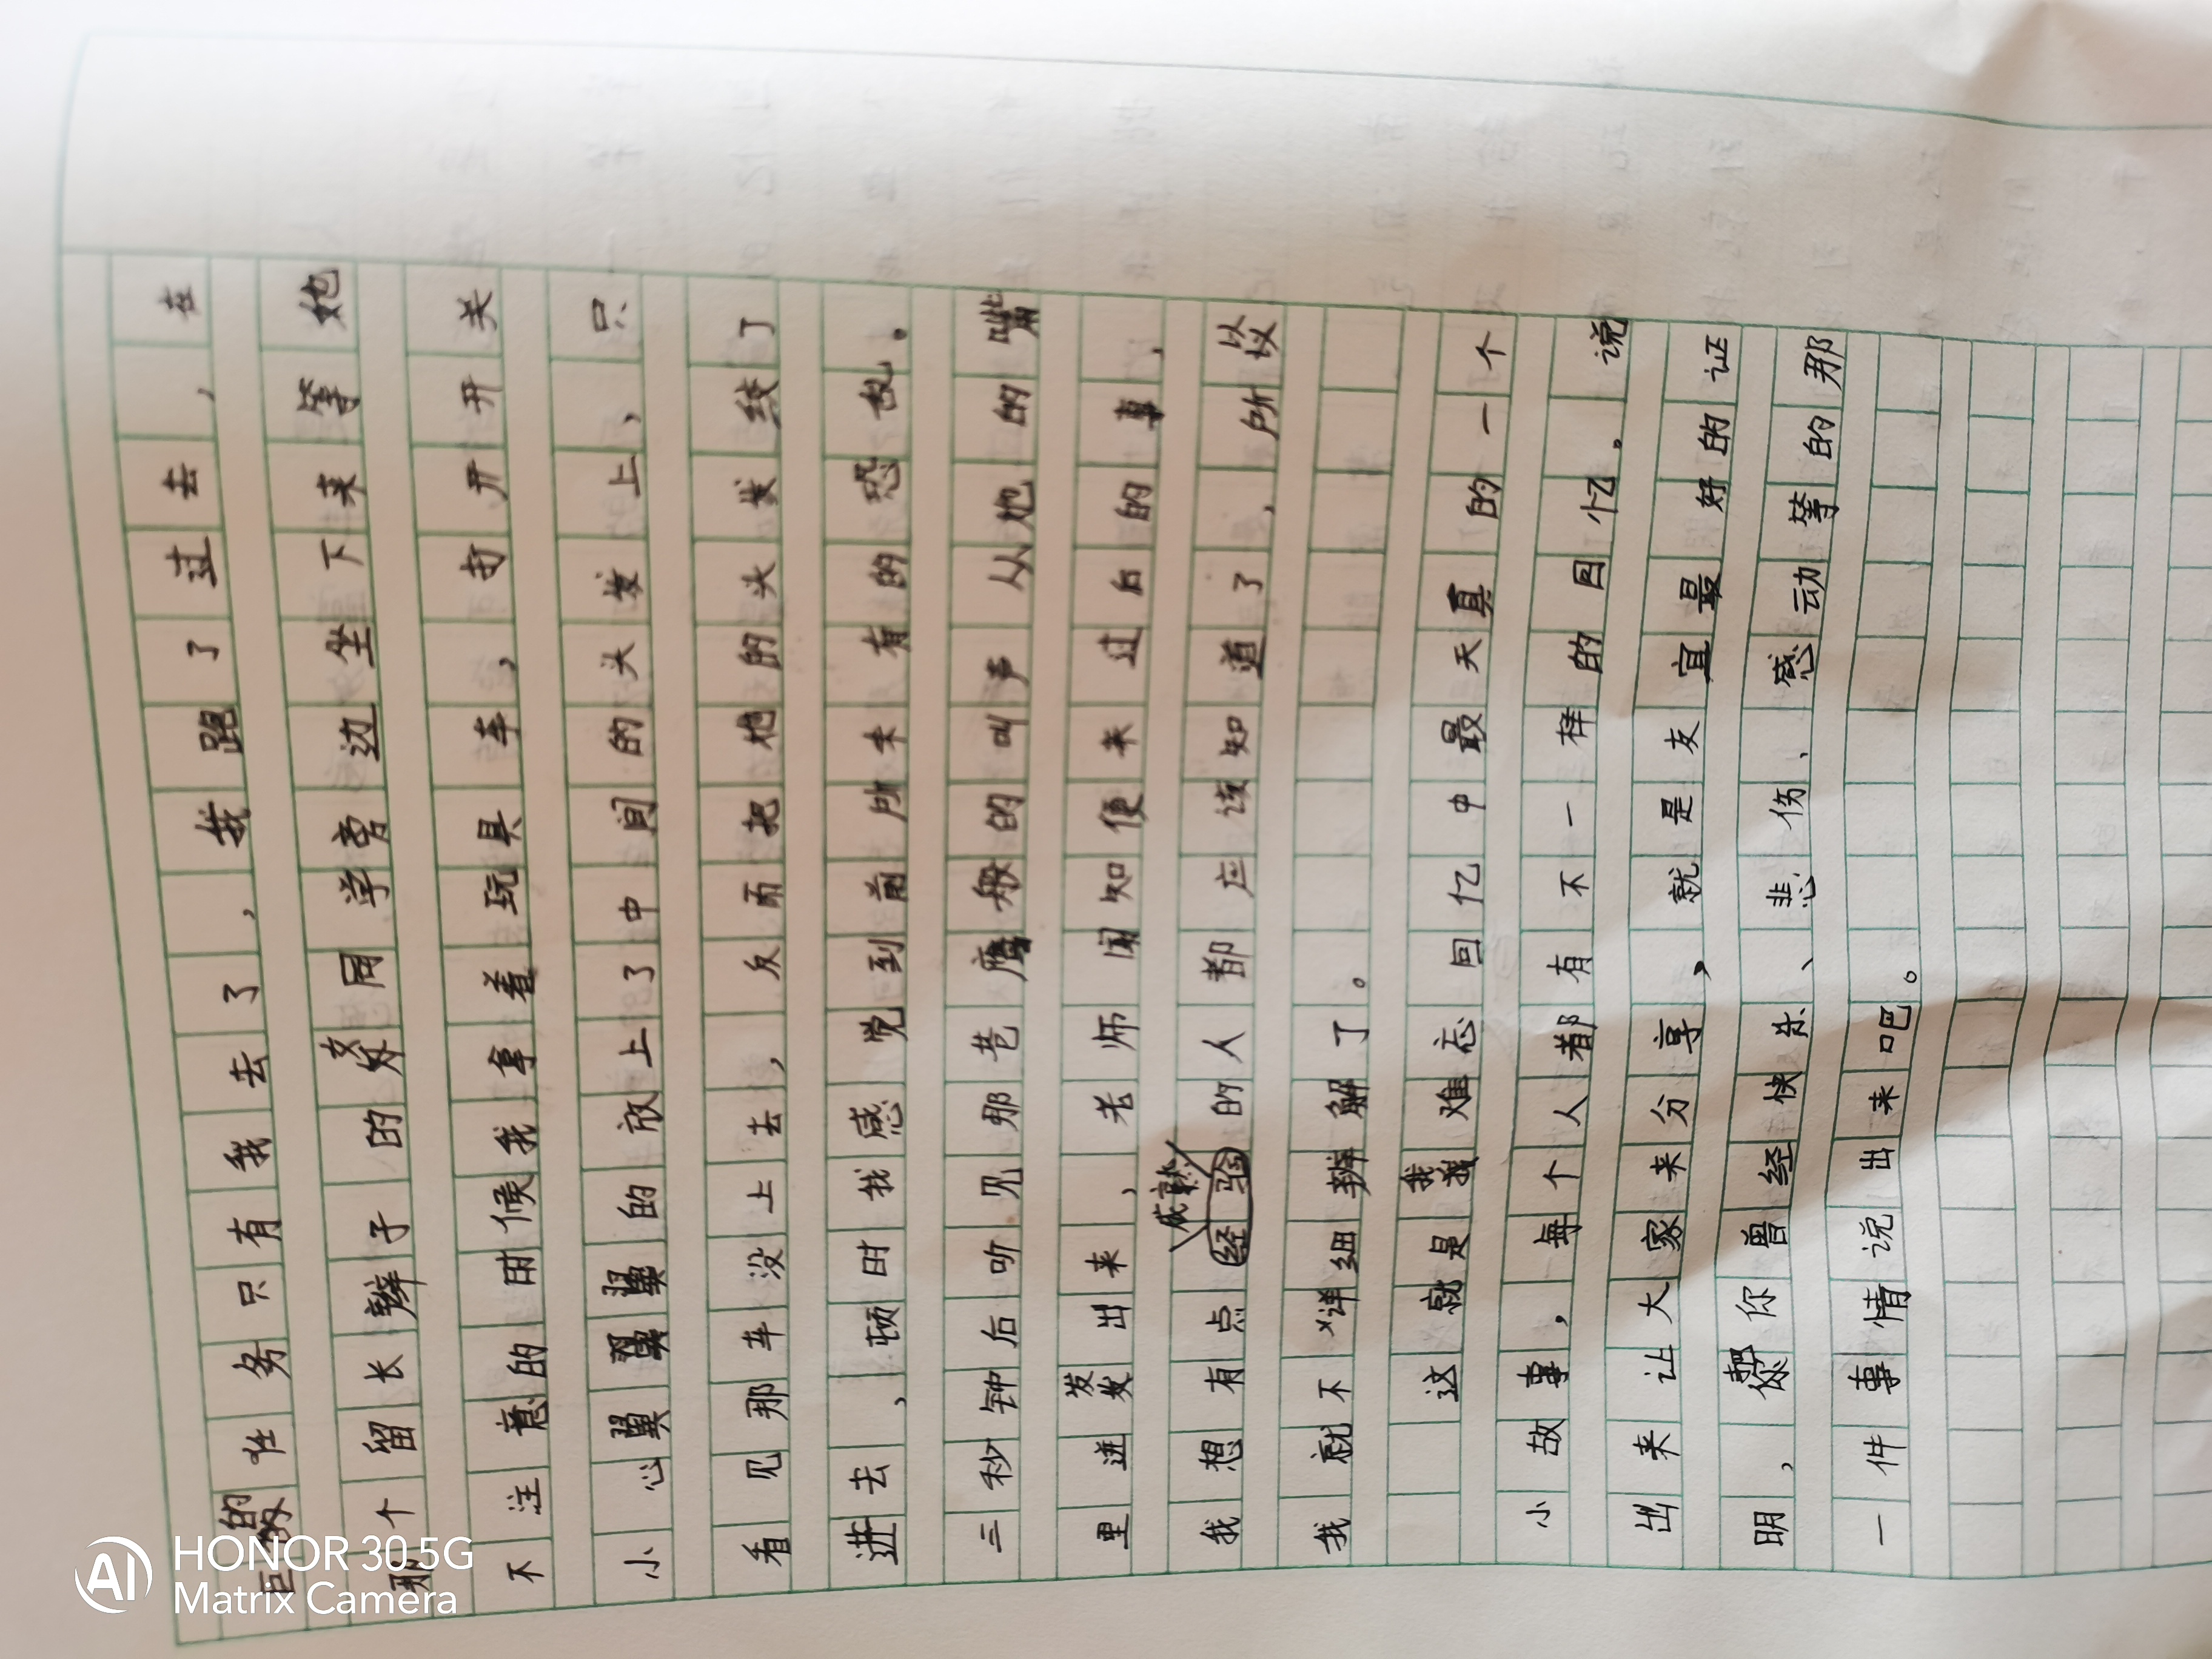 巨的任务只有我去了，我跑了过去，在
那个留长辫子的女同学旁边坐下来等她
不注意的时候我拿着玩具车，打开开关
小心翼翼翼的放上了中间的头发上，只
看见那车没上去，反而把她的头发线了
进去，顿时我感觉到前所未有的恐故。
三秒钟后听见那苍鹰般的叫声从她的嘴
里迸发出来，老师闻知便来过后的事，
我想有点成熟经验的人都应该知道了，所以
我就不详细辫解了。
这就是我难忘回忆中最天真的一个
小故事，每个人都有不一样的回忆。说
出来让大家来分享，就是友宜最好的证
明，把你曾经快乐、悲伤、感动等的那
一件事情说出来吧。
HONOR 30 5G
Matrix Camera
AI